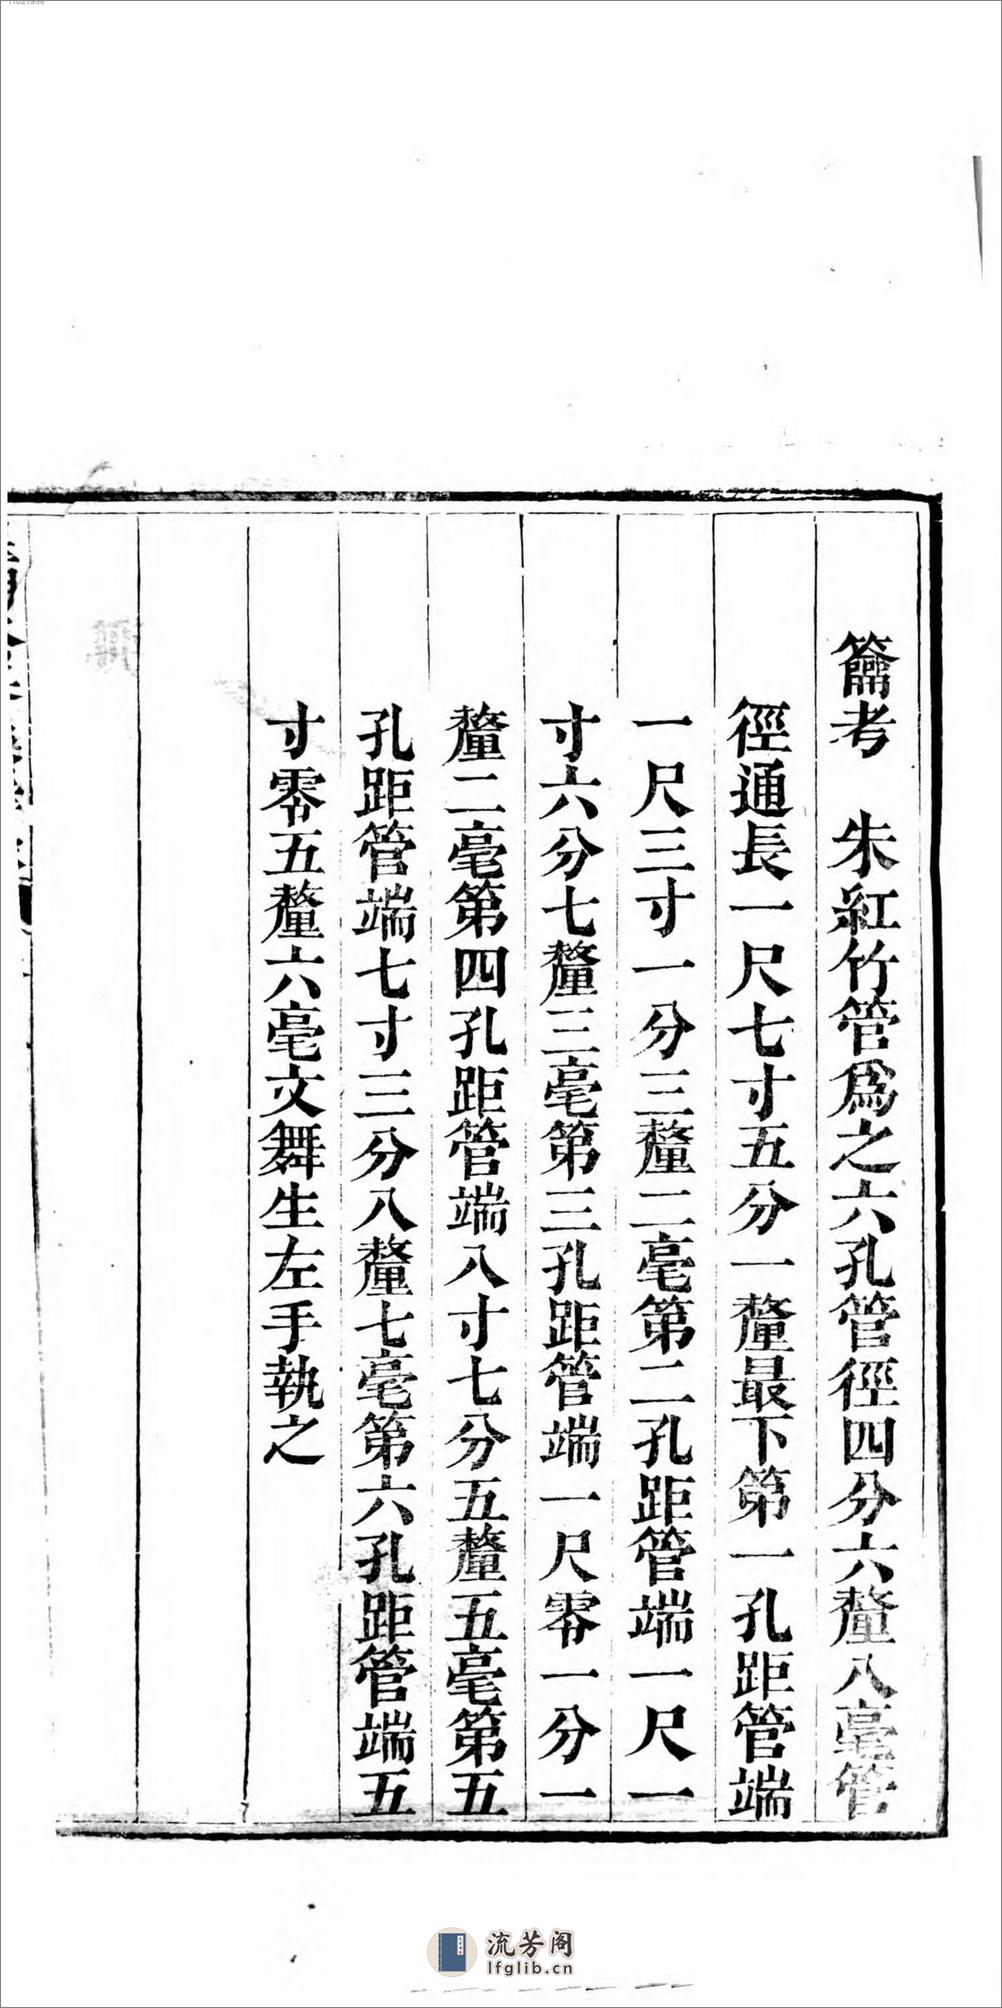 籥考　朱紅竹管爲之六孔管徑四分六釐八毫管
徑通長一尺七寸五分一釐最下第一孔距管端
一尺三寸一分三釐二毫第二孔距管端一尺一
寸六分七釐三毫第三孔距管端一尺零一分一
釐二毫第四孔距管端八寸七分五釐五毫第五
孔距管端七寸三分八釐七毫第六孔距管端五
寸零五釐六毫文舞生左手執之
流芳阁
lfglib.cn
11021936